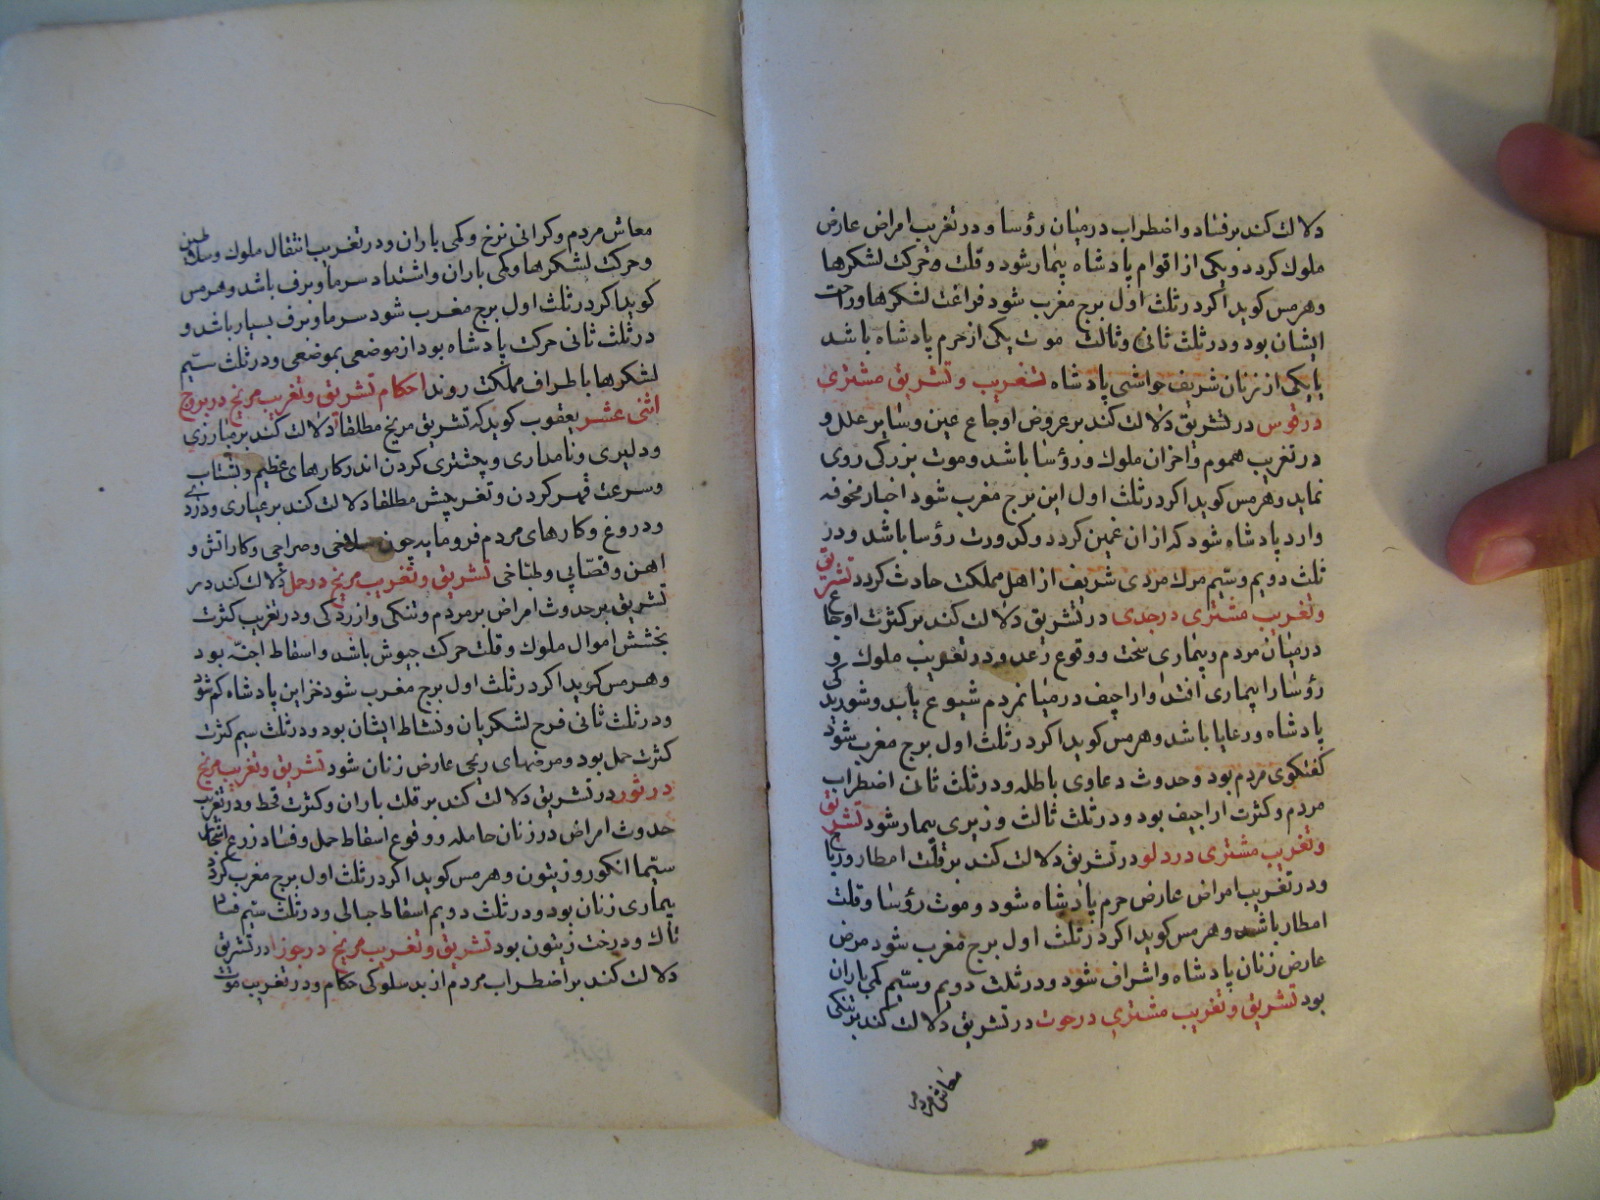 دلالت کند بر فساد و اضطراب در میان رؤسا و در تغریب امراض عارض
ملوک کردد و یکی از اقوام پادشاه بیمار شود و قلت و حرکت لشکرها
و هرمس کوید اکر در ثلث اول برج مغرب شود فراغت لشکرها و راحت
ایشان بود و در ثلث ثانی و ثالث موت یکی از حرم پادشاه باشد
یا یکی از زنان شریف حواشی پادشاه تغریب و تشریق مشتری
در قوس در تشریق دلالت کند بر عروض اوجاع عین و سایر علل و
در تغریب هموم و احزان ملوک و رؤسا باشد و موت بزرکی روی
نماید و هرمس کوید اکر در ثلث اول این برج مغرب شود اخبار مخوفه
وارد پادشاه شود که از ان غمین کردد و کدورت رؤسا باشد و در
ثلث دویم و سیم مرک مردی شریف از اهل مملکت حادث کردد تشریق
و تغریب مشتری در جدی در تشریق دلالت کند بر کثرت اوجاع
در میان مردم و بیماری سخت و وقوع رعد و در تغریب ملوک و
رؤسا را بیماری افتد و اراجیف در میان مردم شیوع یابد و شوریدکی
پادشاه و رعایا باشد و هرمس کوید اکر در ثلث اول برج مغرب شود
کفتکوی مردم بود و حدوث دعاوی باطله و در ثلث ثانی اضطراب
مردم و کثرت اراجیف بود و در ثلث ثالث وزیری بیمار شود تشریق
و تغریب مشتری در دلو در تشریق دلالت کند بر قلت امطار و ریاح
و در تغریب امراض عارض حرم پادشاه شود و موت رؤسا و قلت
امطار باشد و هرمس کوید اکر در ثلث اول برج مغرب شود مرض
عارض زنان پادشاه و اشراف شود و در ثلث دویم و سیم کمی باران
بود تشریق و تغریب مشتری در حوت در تشریق دلالت کند بر تنکی
معاش مردم
معاش مردم و کرانی نرخ و کمی باران و در تغریب انتقال ملوک و سلاطین
و حرکت لشکرها و کمی باران و اشتداد سرما و برف باشد و هرمس
کوید اکر در ثلث اول برج مغرب شود سرما و برف بسیار باشد و
در ثلث ثانی حرکت پادشاه بود از موضعی بموضعی و در ثلث سیم
لشکرها باطراف مملکت روند احکام تشریق و تغریب مریخ در بروج
اثنی عشر یعقوب کوید که تشریق مریخ مطلقا دلالت کند بر مبارزی
و دلیری و نامداری و چشتری کردن اندر کارهای عظیم و بشتاب
و سرعت قهر کردن و تغریبش مطلقا دلالت کند بر عیاری و دزدی
و دروغ و کارهای مردم فرومایه چون سلاخی و جراحی و کار اتش و
اهن و قصابی و طباخی تشریق و تغریب مریخ در حمل دلالت کند در
تشریق بر حدوث امراض بر مردم و تنکی و ازردکی و در تغریب کثرت
بخشش اموال ملوک و قلت حرکت جیوش باشد و اسقاط اجنه بود
و هرمس کوید اکر در ثلث اول برج مغرب شود خزاین پادشاه کم شود
و در ثلث ثانی فرح لشکریان و نشاط ایشان بود و در ثلث سیم کثرت
کثرت حمل بود و مرضهای ریحی عارض زنان شود تشریق و تغریب مریخ
در ثور در تشریق دلالت کند بر قلت باران و کثرت قحط و در تغریب
حدوث امراض در زنان حامله و وقوع اسقاط حمل و فساد زرع اشجار
سیما انکور و زیتون و هرمس کوید اکر در ثلث اول برج مغرب کردد
بیماری زنان بود و در ثلث دویم اسقاط حبالی و در ثلث سیم فساد
تاک و درخت زیتون بود تشریق و تغریب مریخ در جوزا در تشریق
دلالت کند بر اضطراب مردم از بد سلوکی حکام و در تغریب موت